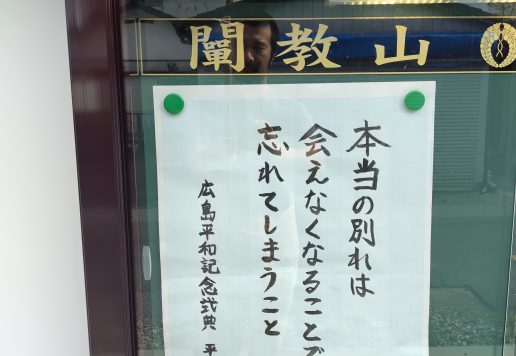 闡教山
本当の別れは
会えなくなることで
忘れてしまうこと
広島平和記念式典 平